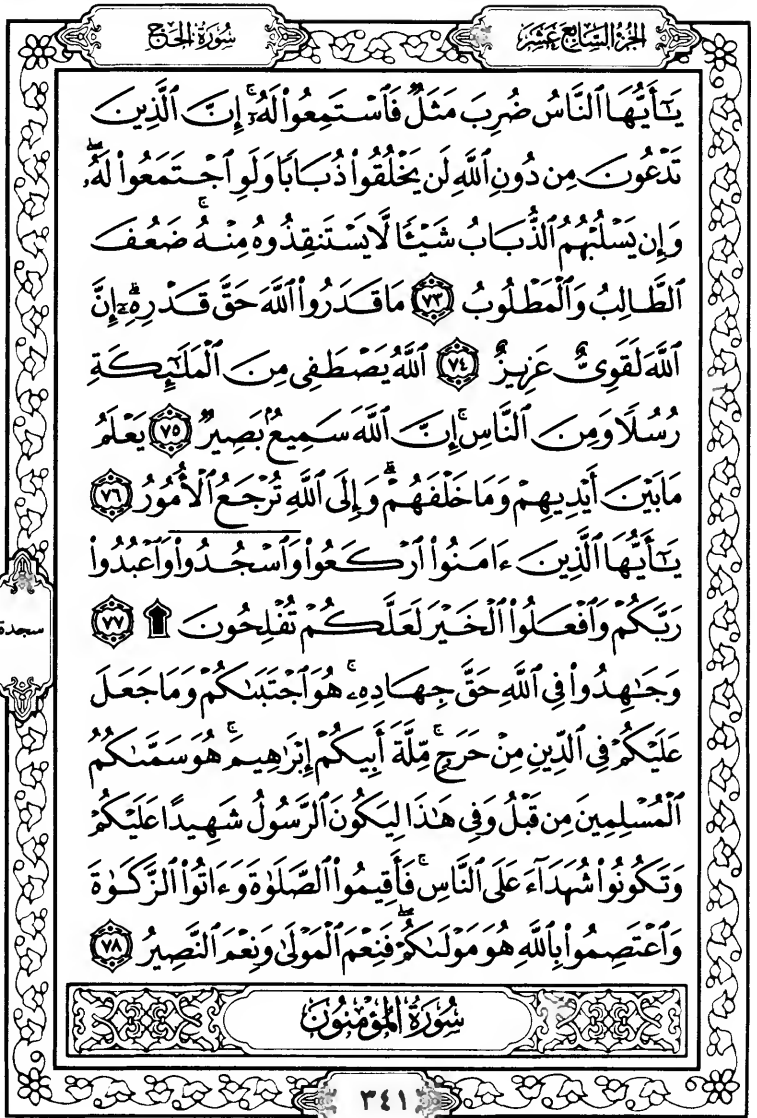 سُورَةُ الحَجِّ
الجُزْءُ السَّابِعَ عَشَرَ
يَـٰٓأَيُّهَا ٱلنَّاسُ ضُرِبَ مَثَلٌ فَٱسْتَمِعُوا۟ لَهُۥٓ ۚ إِنَّ ٱلَّذِينَ
تَدْعُونَ مِن دُونِ ٱللَّهِ لَن يَخْلُقُوا۟ ذُبَابًا وَلَوِ ٱجْتَمَعُوا۟ لَهُۥ ۖ
وَإِن يَسْلُبْهُمُ ٱلذُّبَابُ شَيْـًٔا لَّا يَسْتَنقِذُوهُ مِنْهُ ۚ ضَعُفَ
ٱلطَّالِبُ وَٱلْمَطْلُوبُ ٧٣ مَا قَدَرُوا۟ ٱللَّهَ حَقَّ قَدْرِهِۦٓ ۗ إِنَّ
ٱللَّهَ لَقَوِىٌّ عَزِيزٌ ٧٤ ٱللَّهُ يَصْطَفِى مِنَ ٱلْمَلَـٰٓئِكَةِ
رُسُلًا وَمِنَ ٱلنَّاسِ ۚ إِنَّ ٱللَّهَ سَمِيعٌۢ بَصِيرٌ ٧٥ يَعْلَمُ
مَا بَيْنَ أَيْدِيهِمْ وَمَا خَلْفَهُمْ ۗ وَإِلَى ٱللَّهِ تُرْجَعُ ٱلْأُمُورُ ٧٦
يَـٰٓأَيُّهَا ٱلَّذِينَ ءَامَنُوا۟ ٱرْكَعُوا۟ وَٱسْجُدُوا۟ وَٱعْبُدُوا۟
رَبَّكُمْ وَٱفْعَلُوا۟ ٱلْخَيْرَ لَعَلَّكُمْ تُفْلِحُونَ ۩ ٧٧
سجدة
وَجَـٰهِدُوا۟ فِى ٱللَّهِ حَقَّ جِهَادِهِۦ ۚ هُوَ ٱجْتَبَىٰكُمْ وَمَا جَعَلَ
عَلَيْكُمْ فِى ٱلدِّينِ مِنْ حَرَجٍ ۚ مِّلَّةَ أَبِيكُمْ إِبْرَٰهِيمَ ۚ هُوَ سَمَّىٰكُمُ
ٱلْمُسْلِمِينَ مِن قَبْلُ وَفِى هَـٰذَا لِيَكُونَ ٱلرَّسُولُ شَهِيدًا عَلَيْكُمْ
وَتَكُونُوا۟ شُهَدَآءَ عَلَى ٱلنَّاسِ ۚ فَأَقِيمُوا۟ ٱلصَّلَوٰةَ وَءَاتُوا۟ ٱلزَّكَوٰةَ
وَٱعْتَصِمُوا۟ بِٱللَّهِ هُوَ مَوْلَىٰكُمْ ۖ فَنِعْمَ ٱلْمَوْلَىٰ وَنِعْمَ ٱلنَّصِيرُ ٧٨
سُورَةُ المُؤْمِنُونَ
٣٤١